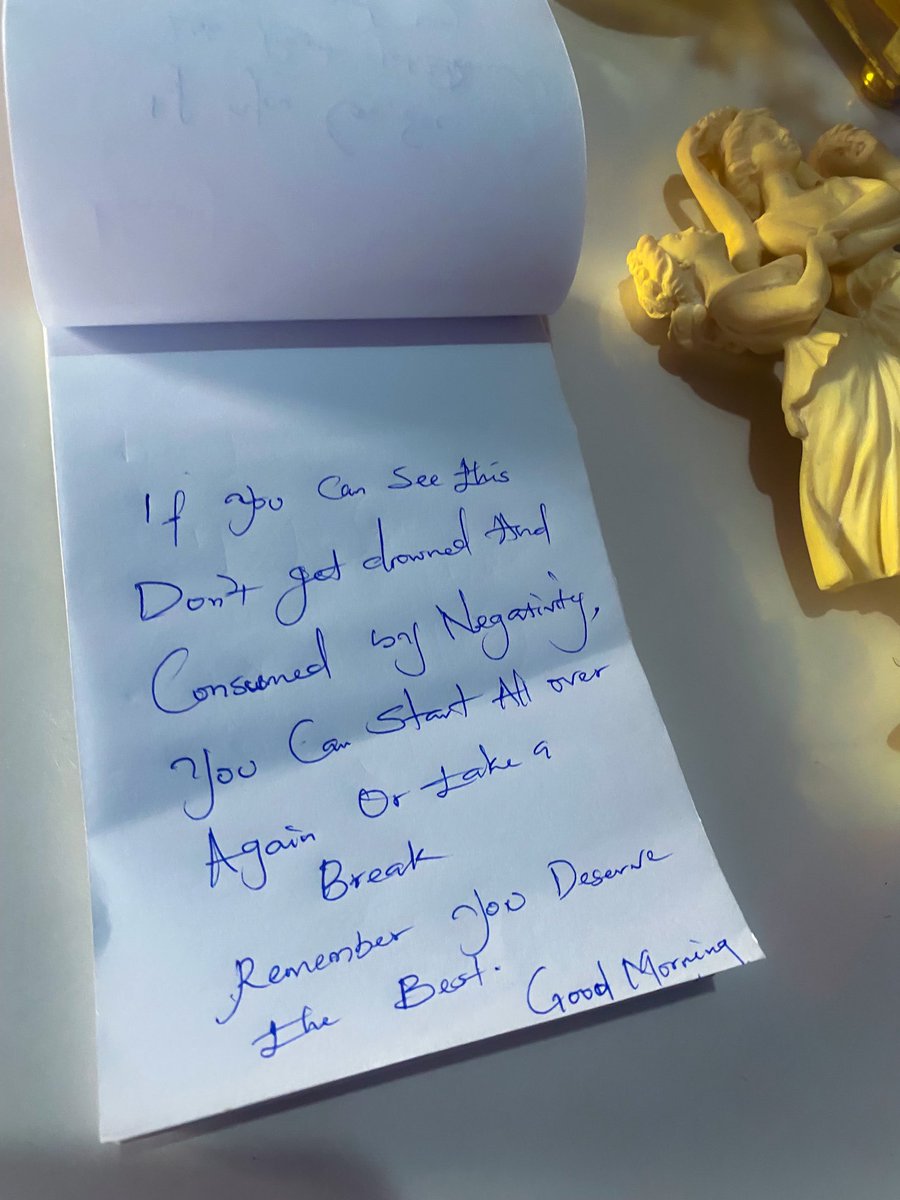 If you can see this
Don't get drowned And
Consumed by Negativity,
You Can Start All over
Again Or take a
Break
Remember You Deserve
the Best.
Good Morning